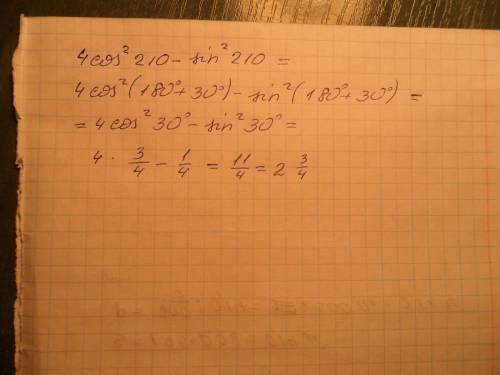 4cos² 210 - sin² 210 =
4cos²(180° + 30°) - sin²(180° + 30°) =
= 4cos² 30° - sin² 30° =
4 · 3/4 - 1/4 = 11/4 = 2 3/4